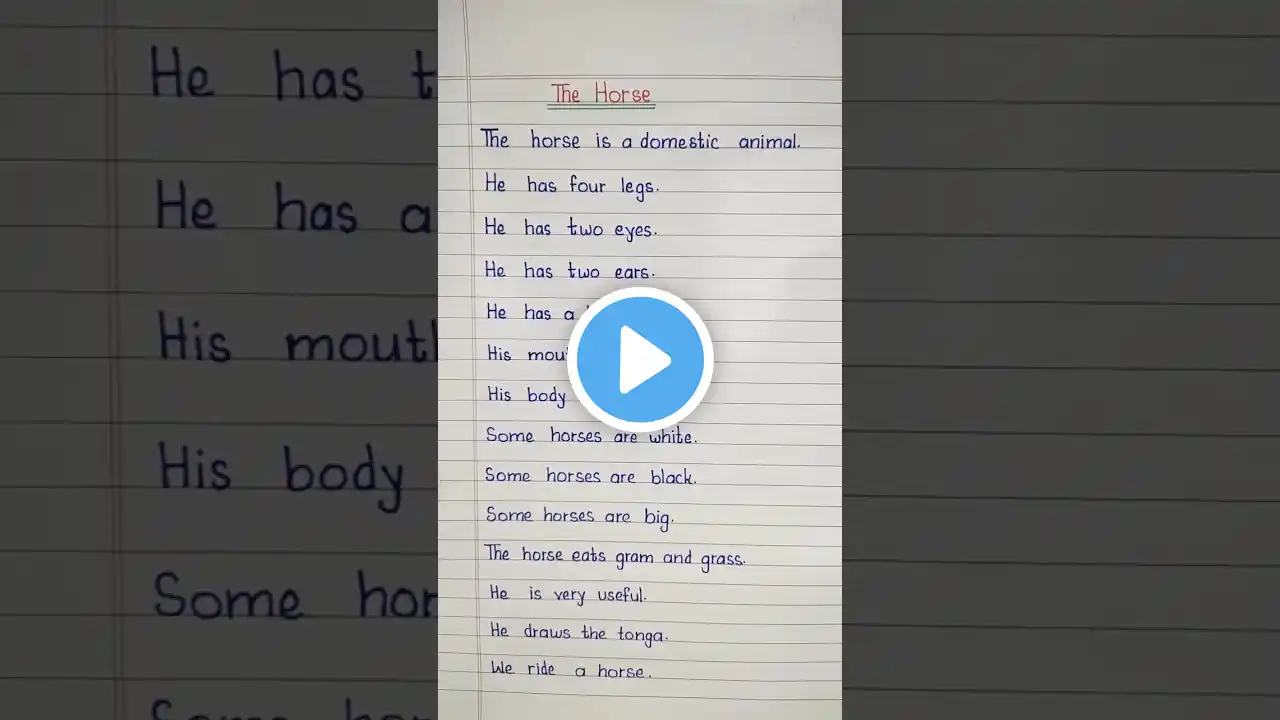 The Horse
The horse is a domestic animal.
He has four legs.
He has two eyes.
He has two ears.
He has a
His
His body
Some horses are white.
Some horses are black.
Some horses are big.
The horse eats gram and grass.
He is very useful.
He draws the tonga.
We ride a horse.
He has
He has a
His mouth
His body
Some